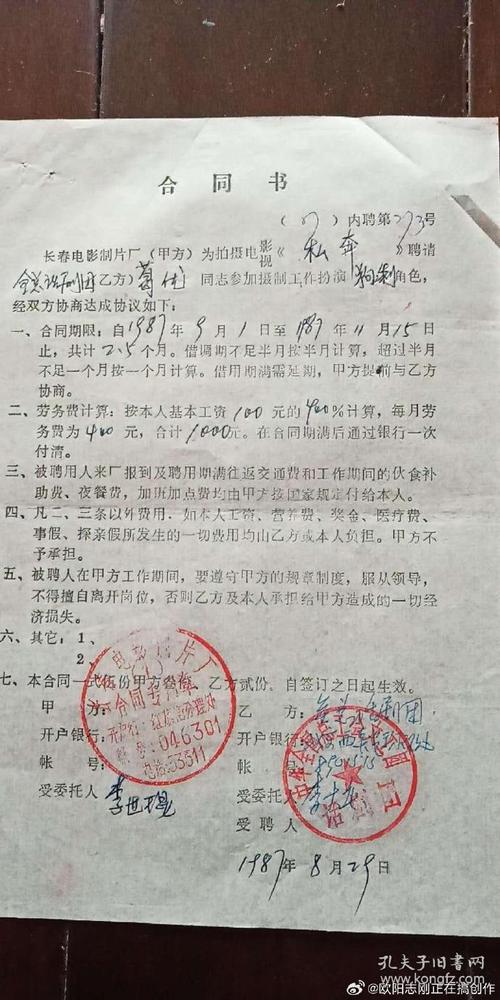 合同书
（87）内聘第273号
长春电影制片厂（甲方）为拍摄电影视《私奔》聘请
全总话剧团（乙方）葛优同志参加摄制工作扮演角色，
经双方协商达成协议如下：
一、合同期限：自1987年9月1日至1987年11月15日
止，共计2.5个月。借调期不足半月按半月计算，超过半月
不足一个月按一个月计算。借用期满需延期，甲方提前与乙方
协商。
二、劳务费计算：按本人基本工资100元的400%计算，每月劳
务费为400元，合计1000元。在合同期满后通过银行一次
付清。
三、被聘用人来厂报到及聘用期满往返交通费和工作期间的伙食补
助费、夜餐费，加班加点费均由甲方按国家规定付给本人。
四、凡二、三条以外费用，如本人工资、营养费、奖金、医疗费、
事假、探亲假所发生的一切费用均由乙方或本人负担。甲方不
予承担。
五、被聘人在甲方工作期间，要遵守甲方的规章制度，服从领导，
不得擅自离开岗位，否则乙方及本人承担给甲方造成的一切经
济损失。
六、其它：1、
2、
七、本合同一式伍份甲方叁份，乙方贰份。自签订之日起生效。
甲方：
开户银行：
帐号：
受委托人：李世
电影制片厂
合同专用章
开户行：红旗街办理处
帐号：046301
电话：53311
乙方：全总话剧团
开户银行：
帐号：
受委托人：李
受聘人：
话剧团
1987年8月29日
孔夫子旧书网
www.kongfz.com
@欧阳志刚正在搞创作